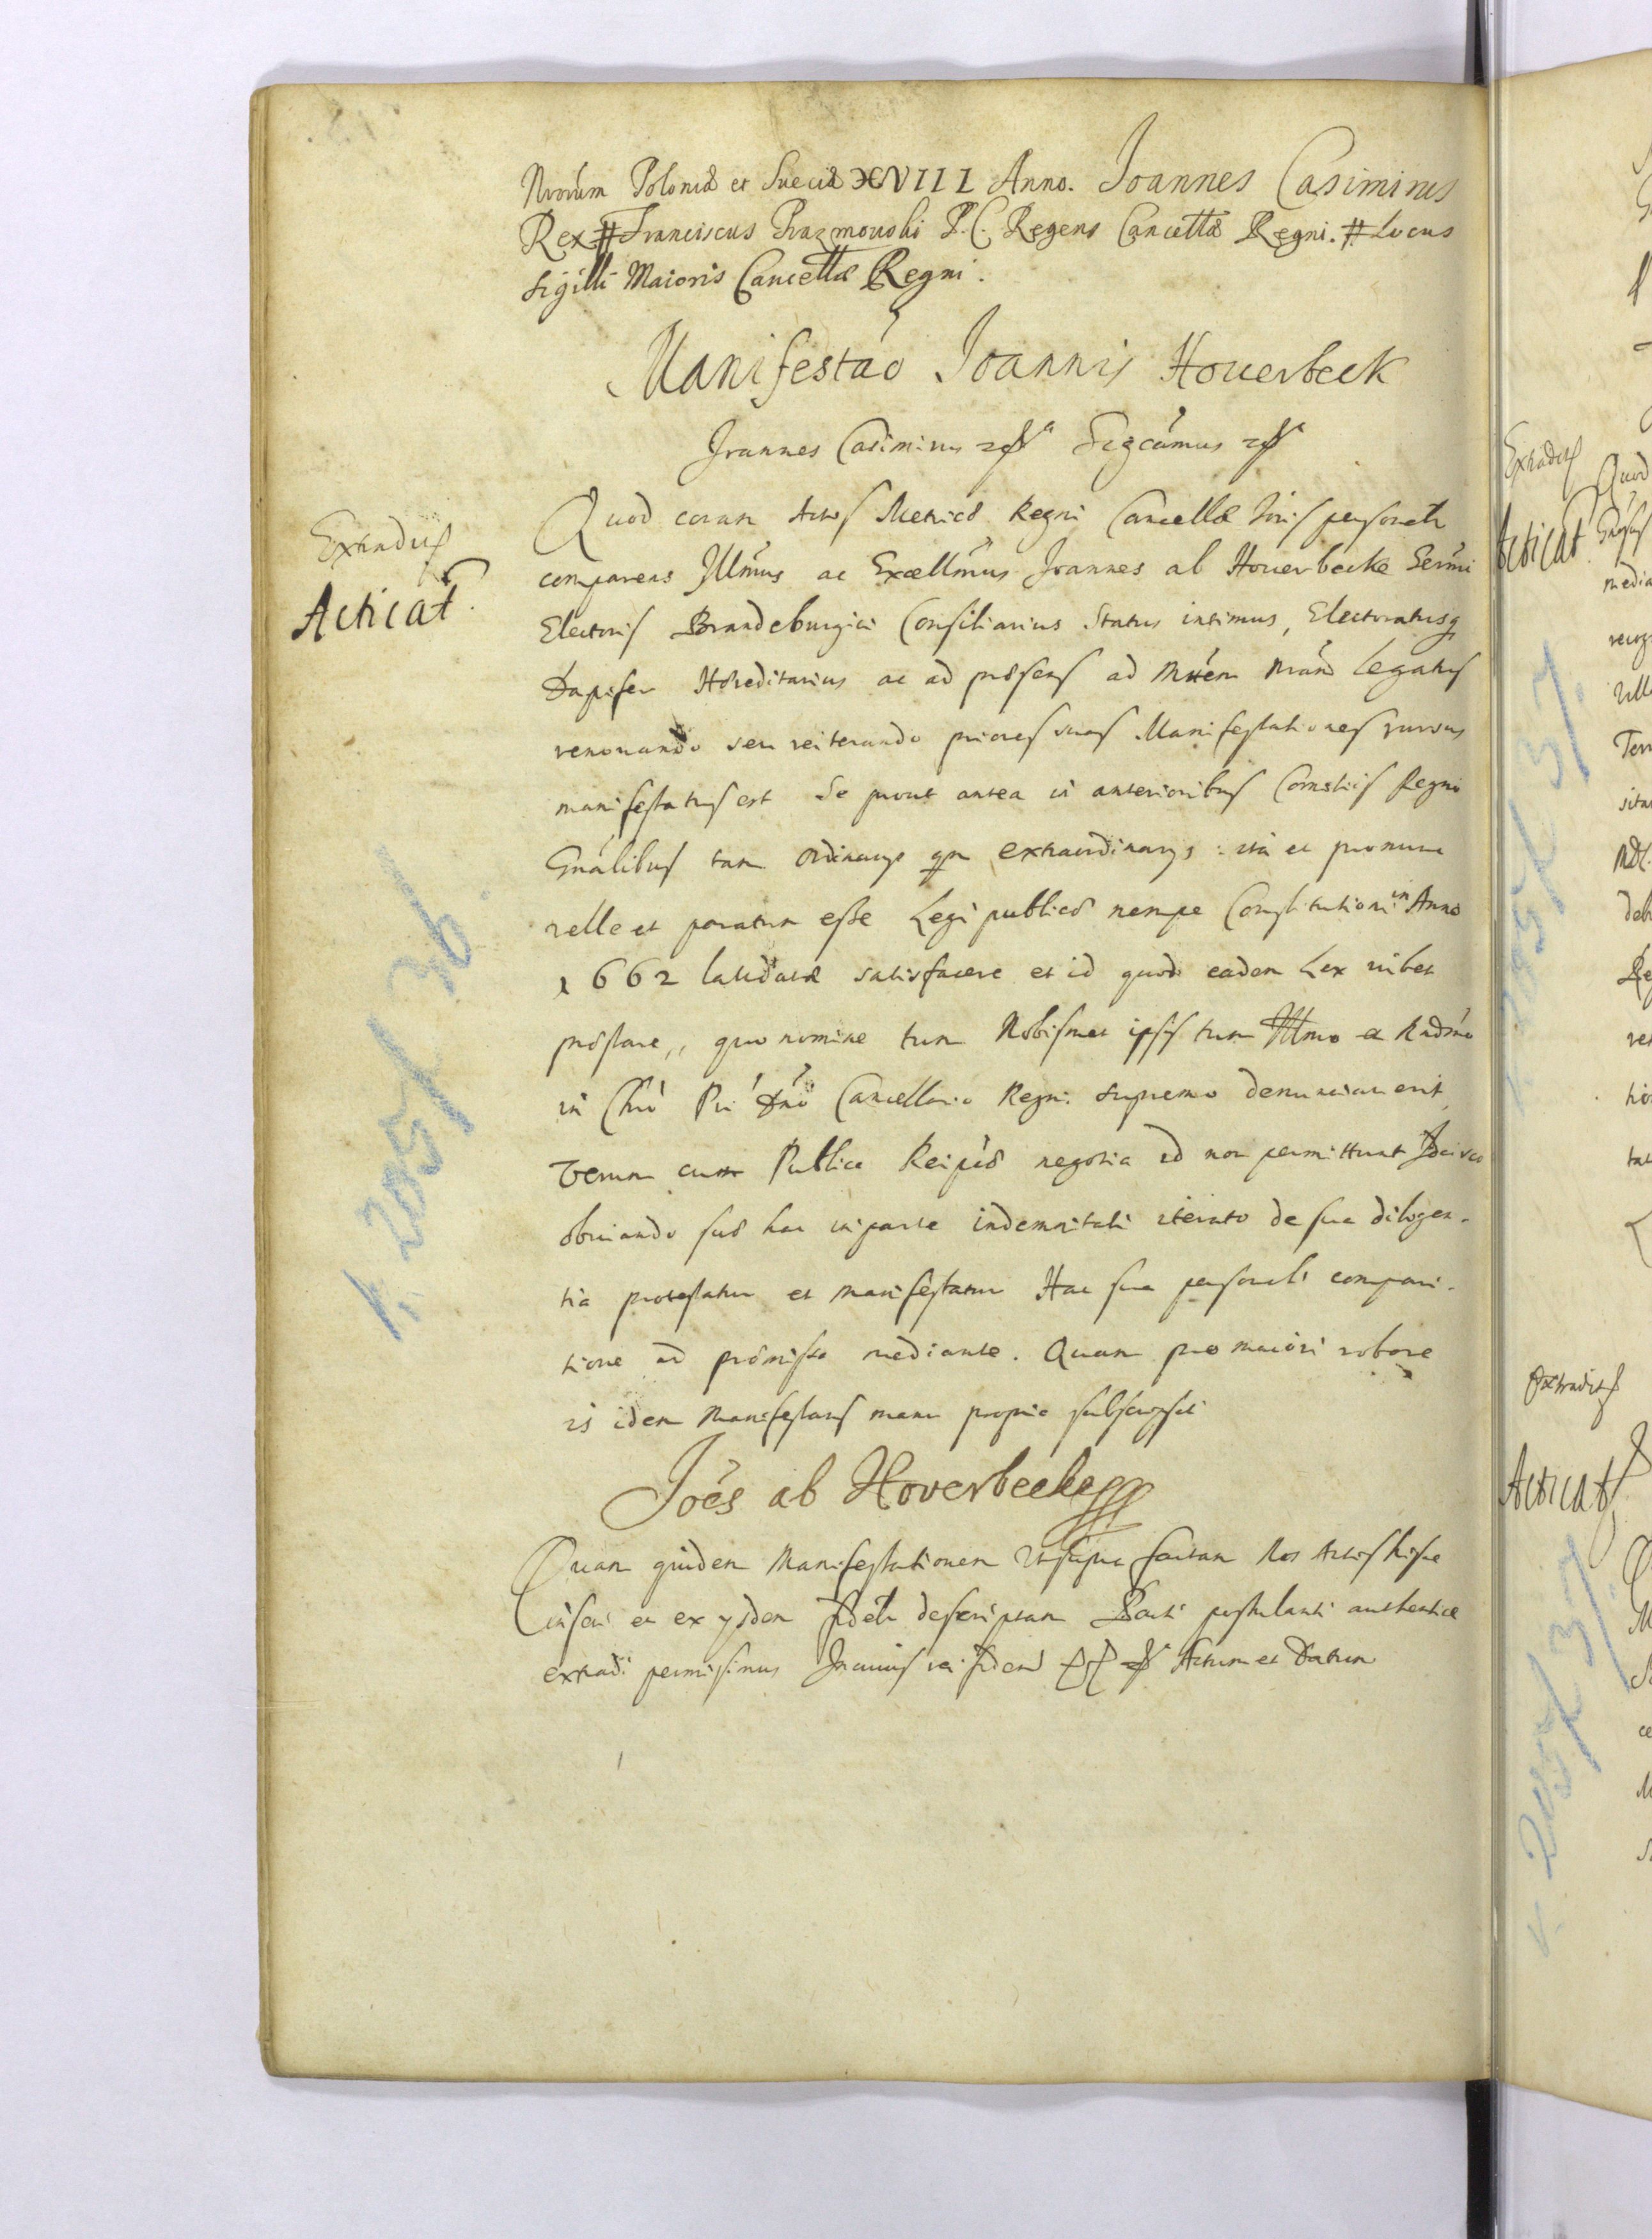 Nrorum Poloniæ et Sueciæ XVIII Anno. Joannes Casimirus
Rex # Franciscus Prazmouski P. C. Regens Cancellæ Regni. # Locus
Sigilli Maioris Cancellæ Regni.
Manifestao Joannis Houerbeck
Joannes Casimirus Sigcamus
Extraditus
Acticat.
Quod coram Actis Metrices Regni Cancellæ Nris personatr
comparens Illmus ac Excellmus Joannes ab Houerbecke Sermi
Electoris Brandeburgici Consiliarius Status intimus, Electoratusq
Dapifer Hæreditarius ac ad præsens ad Mttem nram legatus
renouando seu reiterando priores suas Manifestationes rursus
manifestatus est Se prout antea in anterioribus Comitiis Regni
Gnalibus tam ordinarys qm extraordinarys: ita et pronunc
velle et paratum esse Legi publicæ nempe Constitutioni in Anno
1662 laudatæ satisfacere et id quod eadem Lex iubet
præstare,, quo nomine tum Nobismet ipsis tum Illmo et Rndmo
in Chro Pri Dno Cancellario Regni supremo denunciauerit,
Verum cum Publica Reipcæ negotia id non permittunt Ideirco
obuiando suæ hac in parte indemnitati iterato de sua diligen-
tia protestatur et manifestatur Hac sua personali compari-
tione ad præmissa mediante. Quam pro maiori robore
is idem Manifestans manu propria subscripsit
Joes ab Hoverbecke
Quam quidem Manifestationem ut supra factam Nos Actis hisce
inseri et ex ysdem fidelr descriptam Parti postulanti authentice
extradi permisimus In cuius rei fidem Actum et Datum
k. 205/ 36.
Extraditus
Acticat
Quod
media
Extraditus
Acticat